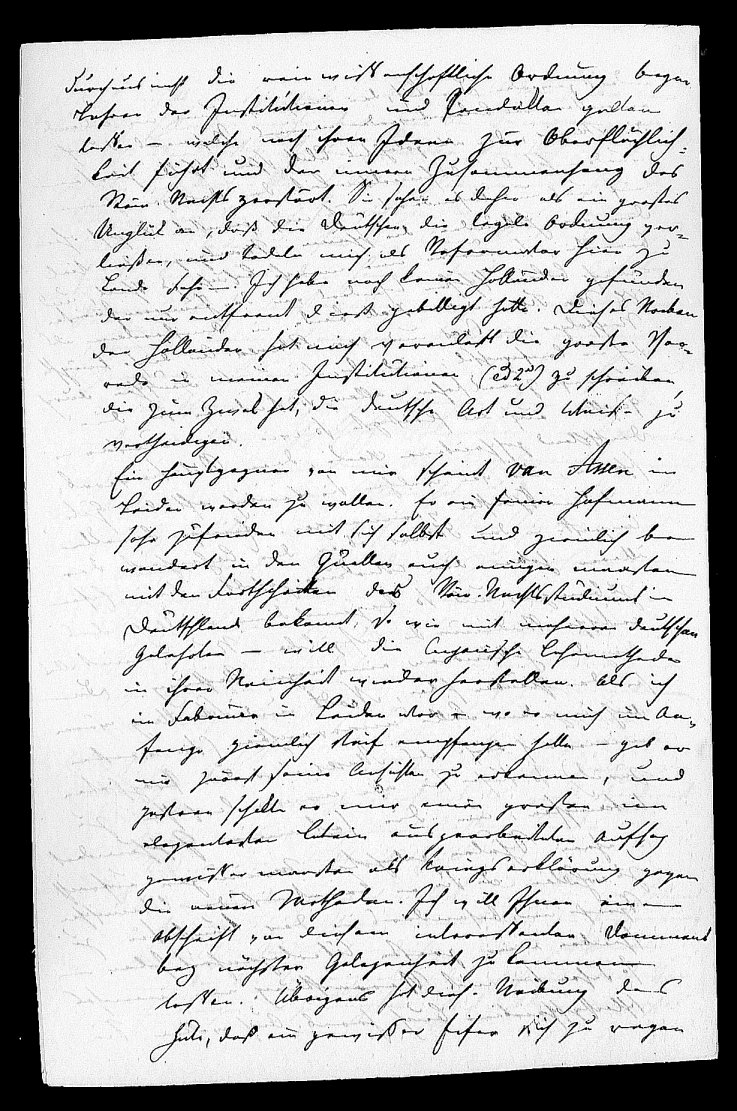 durchaus nicht die rein wissenschaftliche Ordnung beym
Lehren der Institutionen und Pandekten gelten
lassen – welche nach ihren Ideen zur Oberflächlich-
keit führt und den innern Zusammenhang des
Röm. Rechts zerstört. Sie sehen es daher als ein großes
Unglük an, daß die Deutschen die legale Ordnung ver-
ließen, und tadeln mich als Reformator hier zu
Lande sehr. Ich habe noch keinen Holländer gefunden
der nur entfernt dieß gebilligt hätte. Dieses
der Holländer hat mich veranlaßt die große Vor-
rede zu meinen Institutionen (ed 2a) zu schreiben,
die zum Zwek hat, die deutsche Art und Weise zu
vertheidigen.
Ein Hauptgegner von mir scheint van Assen in
Leiden werden zu wollen. Er ein feiner Hofmann
sehr zufrieden mit sich selbst und ziemlich be-
wandert in den Quellen auch einiger maasen
mit den Fortschritten des Röm. Rechtsstudiums in
Deutschland bekannt, so wie mit mehreren deutschen
Gelehrten – will die Cujacische Lehrmethode
in ihrer Reinheit wieder herstellen. Als ich
im Februar in Leiden war – wo er mich im An-
fange ziemlich steif empfangen hatte – gab er
mir zuerst seine Ansichten zu erkennen, und
gestern schikte er mir einen großen im
elegantesten Latein ausgearbeiteten Aufsaz
gewisser maasen als Kriegserklärung gegen
die neuen Methoden. Ich will Ihnen eine
Abschrift von diesem interessanten Document
bey nächster Gelegenheit zukommen
lassen. Übrigens hat diese Reibung das
Gute, daß ein gewisser Eifer sich zu regen